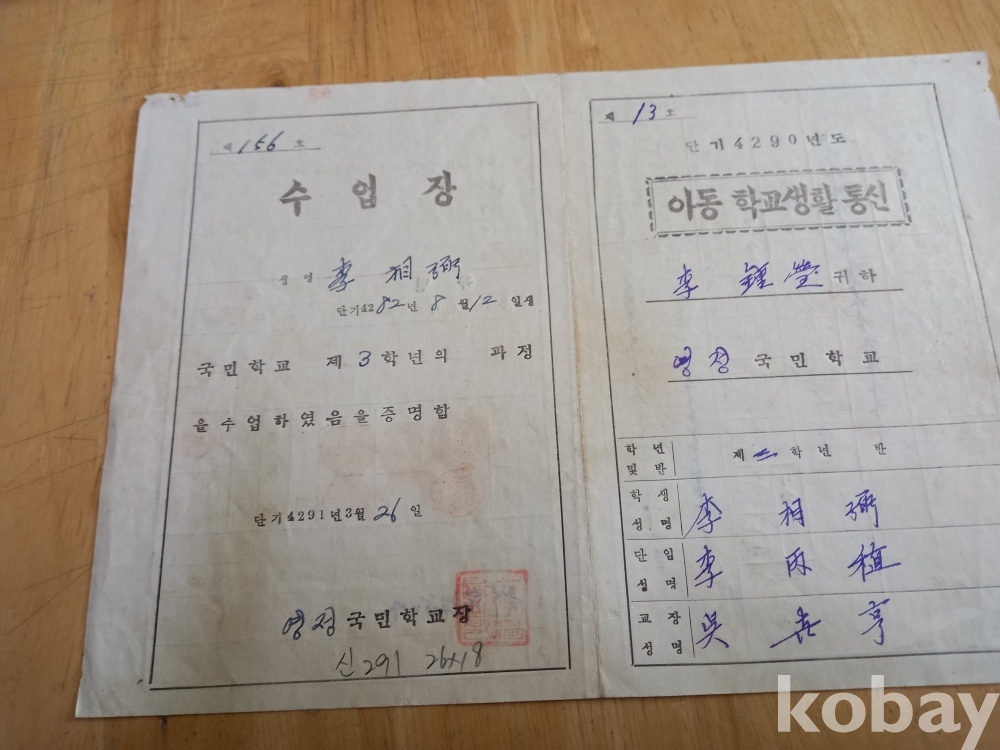 제 156 호
수 업 장
성 명 李 相 弼
단기 4282년 8 월 12 일생
국민학교 제 3 학년의 과정
을 수업하였음을 증명함
단기 4291년 3월 26 일
영정 국민학교장
신 291 26x18
제 13 호
단기 4290년도
아동 학교생활 통신
李 鍾 瑩 귀하
영정 국민학교
학 년 및 반 제 학년 반
학 생 성 명 李 相 弼
담 임 성 명 李 丙 植
교 장 성 명 吳 亨
kobay